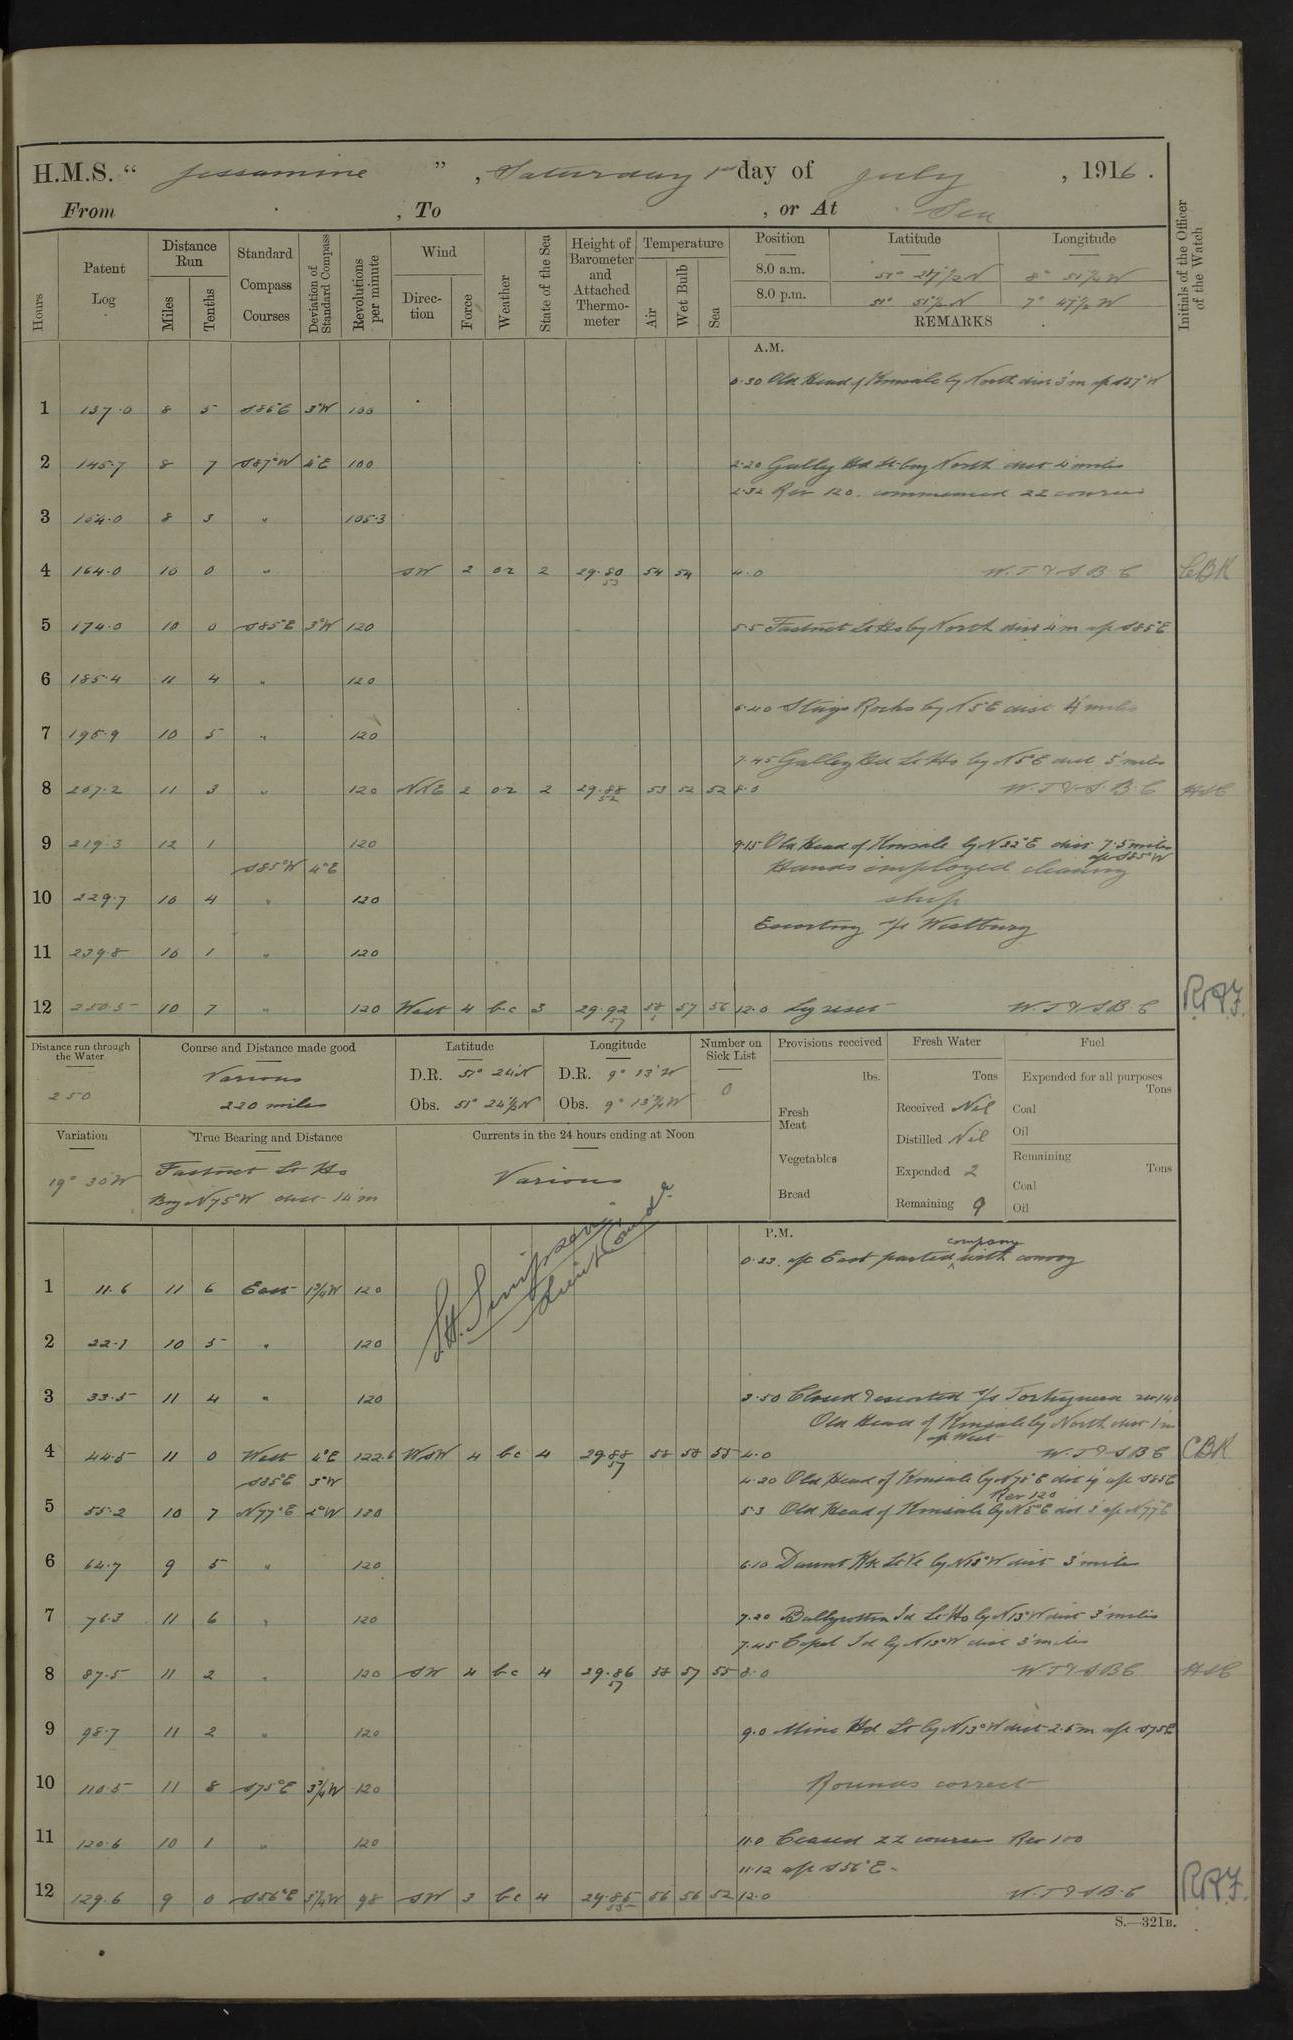 H.M.S. " Jessamine ", Saturday 1st day of July, 1916.
From , To , or At Sea
Hours
Patent Log
Distance Run
Miles
Tenths
Standard Compass Courses
Deviation of Standard Compass
Revolutions per minute
Wind
Direction
Force
Weather
State of the Sea
Height of Barometer and Attached Thermometer
Temperature
Air
Wet Bulb
Sea
Position Latitude Longitude
8.0 a.m. 8° 51½ W
8.0 p.m. 51° 51½ N 7° 47½ W
REMARKS
Initials of the Officer of the Watch
A.M.
0.30 Old Head of Kinsale by North dist 3'm a/c S87°W
1 137.0 8 5 S86°E 3°W 100
2 145.7 8 7 S87°W 4°E 100 2.20 Galley Hd Lt by North dist 4 miles
2.32 Rev 120. commenced ZZ courses
3 154.0 8 3 " 105.3
4 164.0 10 0 " SW 2 or 2 29.80 53 54 54 4.0 W.T & S B. C CBK
5 174.0 10 0 S85°E 3°W 120 5.5 Fastnet Lt Ho by North dist 4 m a/c S85°E
6 185.4 11 4 " 120
6.40 Stags Rocks by N5°E dist 4 miles
7 195.9 10 5 " 120
7.45 Galley Hd Lt Ho by N5°E dist 5 miles
8 207.2 11 3 " 120 NNE 2 or 2 29.88 52 53 52 52 8.0 W.T & S.B.C
9 219.3 12 1 120 9.15 Old Head of Kinsale by N32°E dist 7.5 miles
a/c S85°W
S85°W 4°E Hands employed cleaning
10 229.7 10 4 " 120 ship
Escorting s/s Westbury
11 239.8 10 1 " 120
12 250.5 10 7 " 120 West 4 bc 3 29.92 57 58 57 56 12.0 Log reset W.T & S B. C
Distance run through the Water
250
Course and Distance made good
Various
220 miles
Latitude
D.R. 51° 24' N
Obs. 51° 24½ N
Longitude
D.R. 9° 13' W
Obs. 9° 13½ W
Number on Sick List
0
Provisions received
lbs.
Fresh Meat
Vegetables
Bread
Fresh Water
Tons
Received Nil
Distilled Nil
Expended 2
Remaining 9
Fuel
Expended for all purposes
Tons
Coal
Oil
Remaining
Tons
Coal
Oil
Variation
19° 30 W
True Bearing and Distance
Fastnet Lt Ho
Brg N75°W dist 14'm
Currents in the 24 hours ending at Noon
Various
S.H. Simpson
Lieut Comdr
P.M.
0.23. a/c East parted company with convoy
1 11.6 11 6 East 120
2 22.1 10 5 " 120
3 33.5 11 4 " 120 3.50 Closed & escorted s/s
Old Head of Kinsale by North dist 1m
a/c West
4 44.5 11 0 West 4°E 122.6 WSW 4 bc 4 29.88 57 58 58 55 4.0 W.T & S B C CBK
S85°E 3°W 4.20 Old Head of Kinsale by N78°E dist 4' a/c S85°E
Rev 120
5 55.2 10 7 N77°E 2°W 120 5.3 Old Head of Kinsale by N5°E dist 3' a/c N77°E
6 64.7 9 5 " 120 6.10 Daunt Rk Lt Ve by N13°W dist 3 miles
7 76.3 11 6 " 120 7.20 Ballycotton Id Lt Ho by N13°W dist 3 miles
7.45 Capel Id by N13°W dist 3 miles
8 87.5 11 2 " 120 SW 4 bc 4 29.86 57 58 57 55 8.0 W.T & S B C
9 98.7 11 2 " 120 9.0 Mine Hd Lt by N13°W dist 2.5 m a/c S75°E
10 110.5 11 8 S75°E 3¾W 120 Rounds correct
11 120.6 10 1 " 120 11.0 Ceased ZZ courses Rev 100
11.12 a/c S56°E
12 129.6 9 0 S56°E 5¼W 98 SW 3 bc 4 29.85 55 56 56 52 12.0 W.T & S B. C
S.—321B.